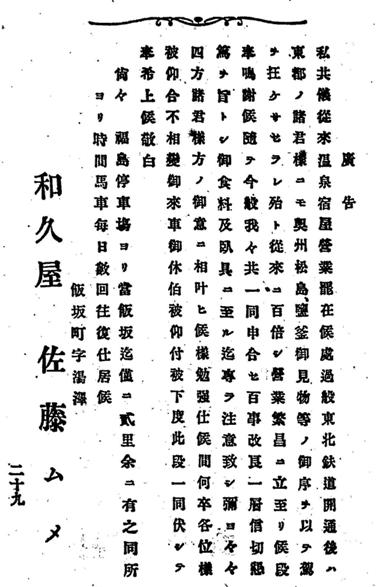 廣告
私共儀從來溫泉宿屋營業罷在候處過般東北鉄道開通後ハ
東都ノ諸君樣ニモ奧州松島、鹽釜御見物等ノ御序ヲ以テ駕
ヲ狂ケサセラレ殆ト從來ニ百倍シ營業繁昌ニ立至リ候段
奉鳴謝候隨テ今般我々共一同申合セ百事改良一層信切懇
篤ヲ旨トシ御食料及臥具ニ至ル迄專ラ注意致シ彌ヨ々々
四方諸君樣方ノ御意ニ相叶ヒ候樣勉强仕候間何卒各位樣
被仰合不相變御來車御休伯被仰付被下度此段一同伏シテ
奉希上候敬白
尙々 福島停車塲ヨリ當飯坂迄僅ニ貳里余ニ有之同所
ヨリ時間馬車每日數回往復仕居候
飯坂町字湯澤
和久屋 佐藤ムメ
二十九